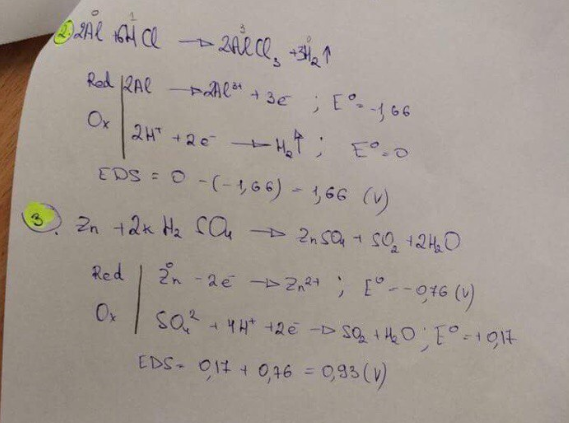 2) 2Al⁰ + 6H¹Cl → 2Al³Cl₃ + 3H₂⁰↑
Red | 2Al → 2Al³⁺ + 3e⁻ ; E⁰ = -1,66
Ox | 2H⁺ + 2e⁻ → H₂↑ ; E⁰ = 0
EDS = 0 - (-1,66) = 1,66 (V)
3. Zn + 2k H₂SO₄ → ZnSO₄ + SO₂ + 2H₂O
Red | Zn⁰ - 2e⁻ → Zn²⁺ ; E⁰ = -0,76 (V)
Ox | SO₄² + 4H⁺ + 2e⁻ → SO₂ + H₂O ; E⁰ = +0,17
EDS = 0,17 + 0,76 = 0,93 (V)